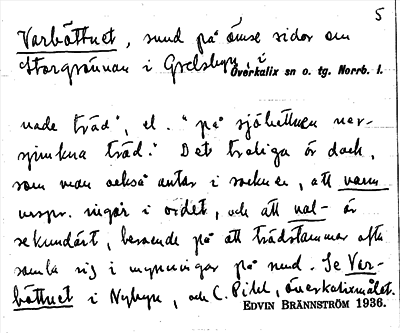 5
Varböttnet, sund på ömse sidor om
Storgrönnan i Grelsbyn, i
Överkalix sn o. tg. Norrb. l.
nade träd", el. "på sjöbottnen ner-
sjunkna träd." Det troliga är dock,
som man också antar i socknen, att varm
urspr. ingår i ordet, och att val- är
sekundärt, beroende på att trädstammar ofta
samla sig i mynningar på sund. Se Var-
böttnet i Nybyn, och C. Pihl, Överkalixmålet.
EDVIN BRÄNNSTRÖM 1936.